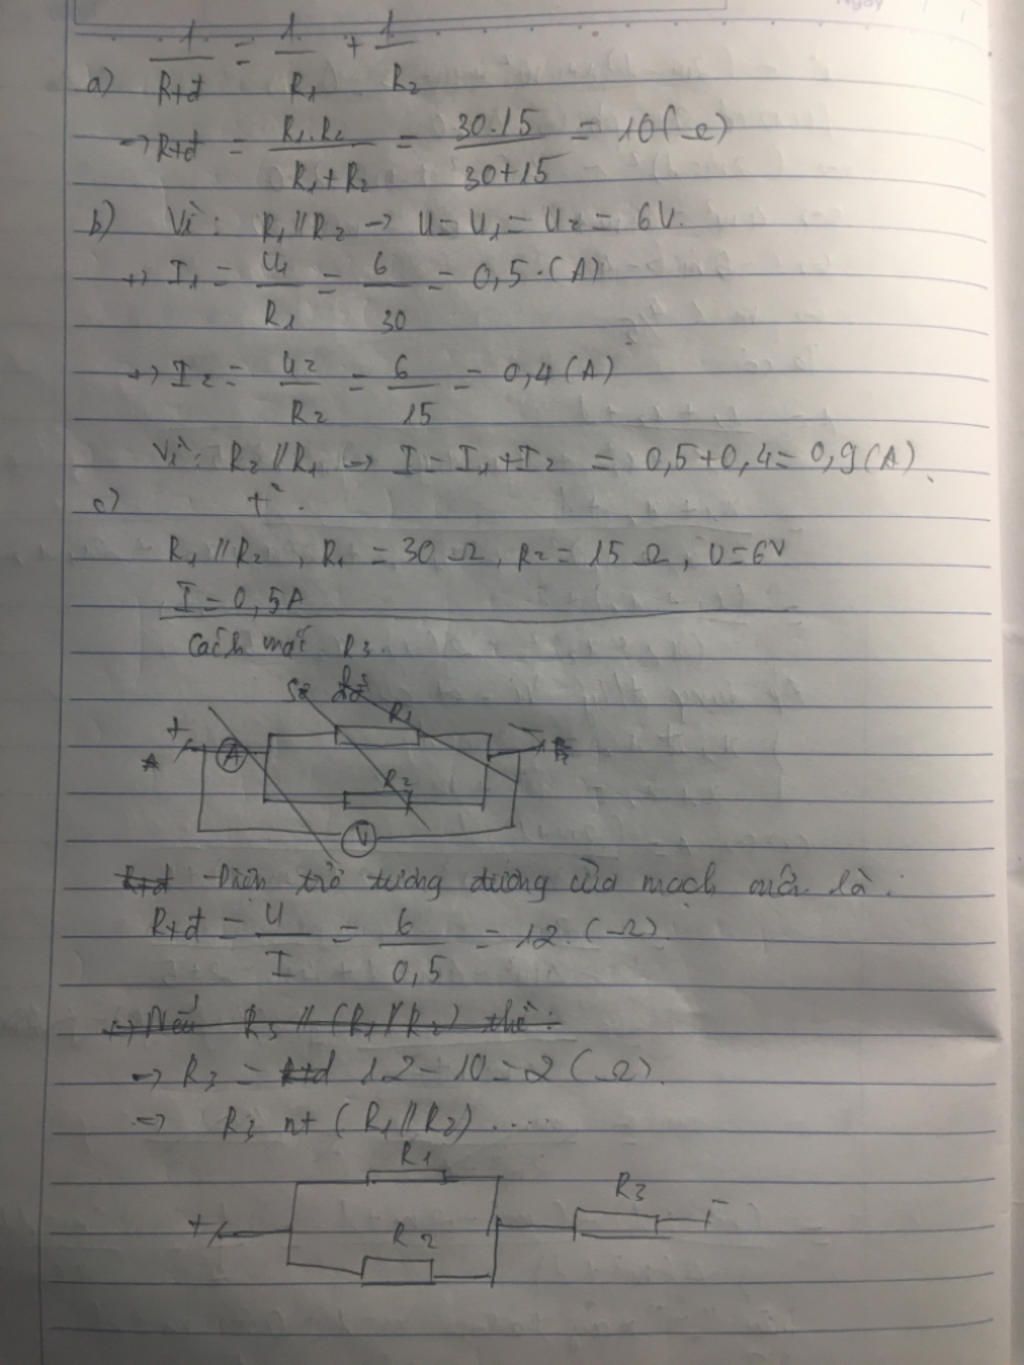 Ngày
a) 1/Rtđ = 1/R1 + 1/R2
→ Rtđ = R1.R2/R1+R2 = 30.15/30+15 = 10(Ω)
b) Vì: R1//R2 → U=U1=U2= 6V.
+) I1 = U1/R1 = 6/30 = 0,5.(A)
+) I2 = U2/R2 = 6/15 = 0,4(A)
Vì: R2//R1 → I=I1+I2 = 0,5+0,4=0,9(A).
c)
R1//R2, R1=30Ω, R2=15Ω, U=6V
I=0,5A
Cách mắc R3.
Sơ đồ
R1
+ A -
R2
V
Rtđ Điện trở tương đương của mạch là:
Rtđ = U/I = 6/0,5 = 12.(Ω)
+) Nếu R3//(R1//R2) thì:
→ R3 = Rtđ 12-10=2(Ω).
=> R3 nt (R1//R2).....
R1
R3
+ -
R2